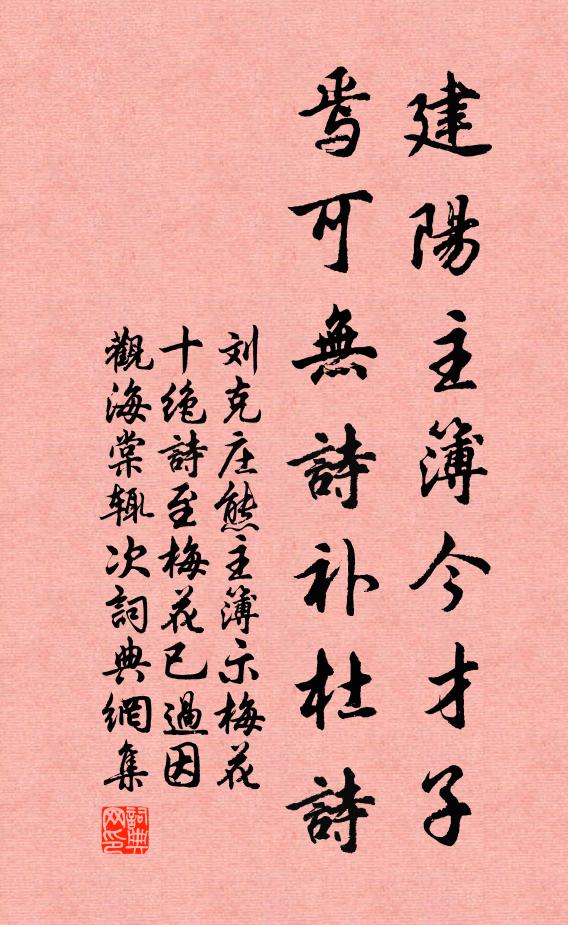 建陽主簿今才子
焉可無詩补杜詩
刘克庄熊主簿示梅花
十绝詩至梅花已過因
觀海棠辄次詞典網集
詞典
网印